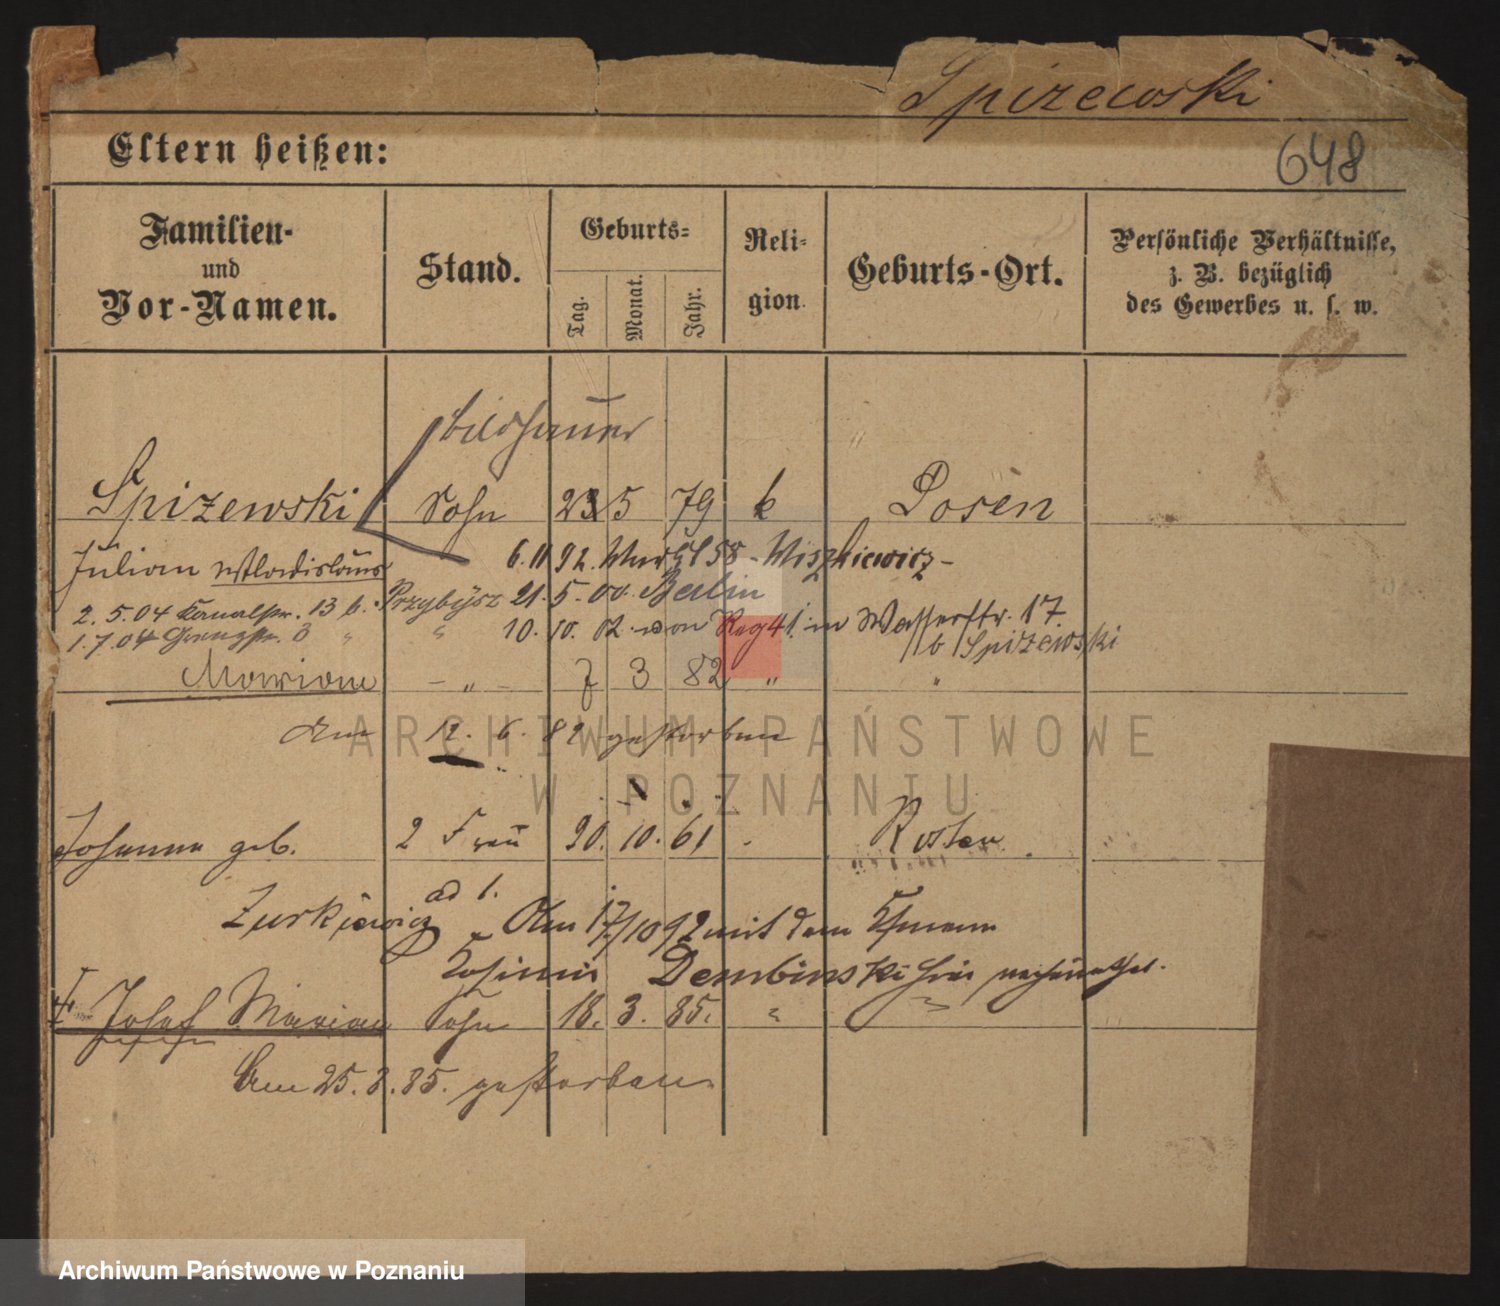 Spizewski
648
Eltern heißen:
Familien-
und
Vor-Namen.
Stand.
Geburts-
Tag.
Monat.
Jahr.
Reli-
gion.
Geburts-Ort.
Persönliche Verhältnisse,
z. B. bezüglich
des Gewerbes u. s. w.
Bildhauer
Spizewski Sohn 23 5 79 k Posen
Julian Wladislaus 6. 11 92. 58 - Wiszkiewicz -
2. 5. 04 Kanalstr. 13 b. Przybysz 21. 5. 00. Berlin
1. 7. 04 Grenzstr. 3 " " 10. 10. 02. von 41. in Wasserstr. 17.
b Spizewski
Marian - " - 7 3 82 " "
Am 12. 6. 82 gestorben
Johanna geb. 2 Frau 20. 10. 61 Kosten
Zurkiewicz ad 1. Am 17/10 92 mit dem
Kasimir Dembinski hier
Josef Marian Sohn 18. 3. 85. " "
Am 25. 3. 85. gestorben
ARCHIWUM PAŃSTWOWE
W POZNANIU
Archiwum Państwowe w Poznaniu